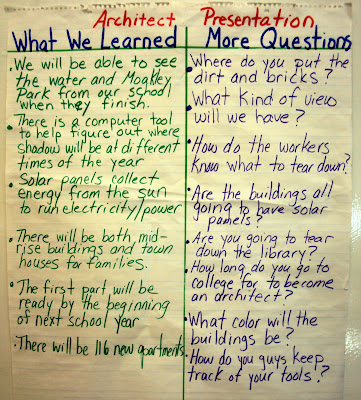 Architect Presentation
What We Learned
• We will be able to see
the water and Moakley
Park from our school
when they finish.
• There is a computer tool
to help figure out where
shadow will be at different
times of the year
• Solar panels collect
energy from the sun
to run electricity/power
• There will be both, mid-
rise buildings and town
houses for families.
• The first part will be
ready by the beginning
of next school year
• There will be 116 new apartments
More Questions
• Where do you put the
dirt and bricks?
• What kind of view
will we have?
• How do the workers
know what to tear down?
• Are the buildings all
going to have solar
panels?
• Are you going to tear
down the library?
• How long do you go to
college for to become
an architect?
• What color will the
buildings be?
• How do you guys keep
track of your tools?